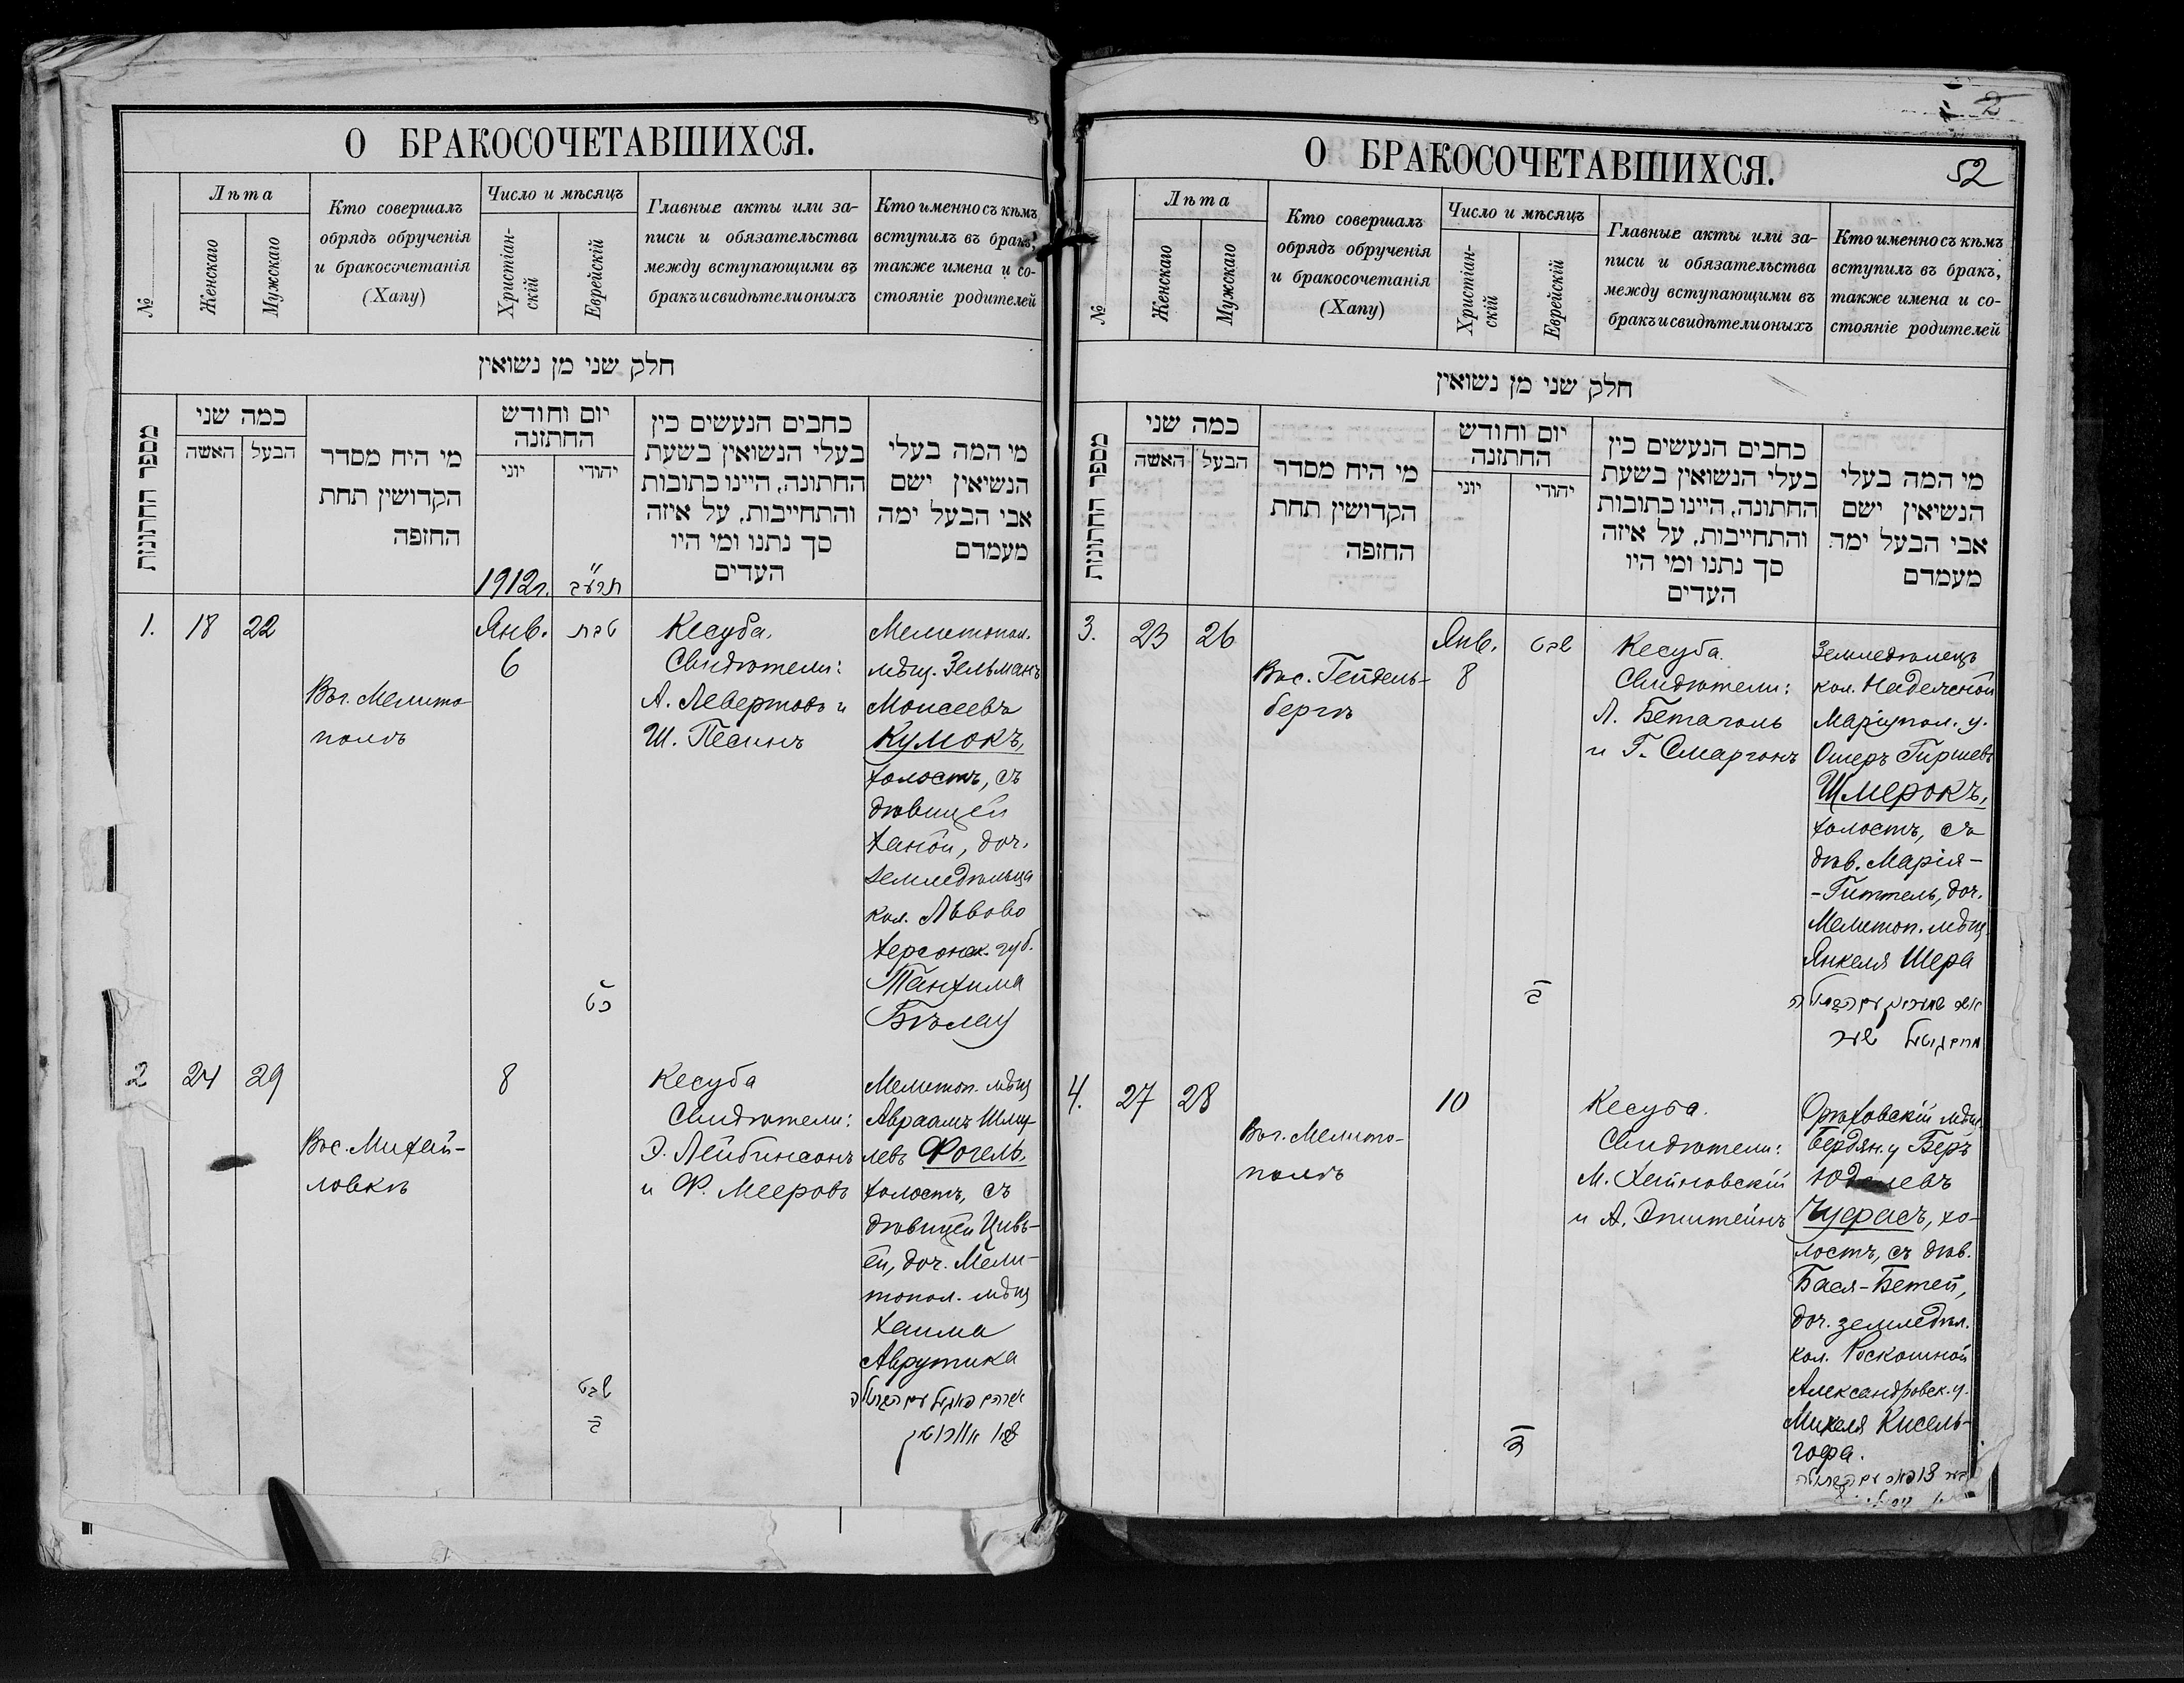 О БРАКОСОЧЕТАВШИХСЯ.
№
Лѣта
Женскаго
Мужскаго
Кто совершалъ
обрядъ обрученія
и бракосочетанія
(Хапу)
Число и мѣсяцъ
Христіан-
скій
Еврейскій
Главные акты или за-
писи и обязательства
между вступающими въ
бракъ и свидѣтели оныхъ
Кто именно съ кѣмъ
вступилъ въ бракъ,
также имена и со-
стояніе родителей
חלק שני מן נשואין
מספר החתונות
כמה שני
האשה
הבעל
מי היח מסדר
הקדושין תחת
החופה
יום וחודש
החתונה
יוני
יהודי
1912 г.
תרע״ב
כתבים הנעשים בין
בעלי הנשואין בשעת
החתונה, היינו כתובות
והתחייבות, על איזה
סך נתנו ומי היו
העדים
מי המה בעלי
הנשיאין ישם
אבי הבעל ימה
מעמדם
1.
18
22
Въ г. Мелито-
полѣ
Янв.
6
טבת
כט
Кесуба.
Свидѣтели:
А. Левертовъ и
Ш. Песинъ
Мелитопол.
мѣщ. Зельманъ
Моисеевъ
Кумокъ,
холостъ, съ
дѣвицей
Ханой, доч.
земледѣльца
кол. Львово
Херсонск. губ.
Танхима
Бѣлау
2
24
29
Въ с. Михай-
ловкѣ
8
שבט
Кесуба
Свидѣтели:
Э. Лейбинсонъ
и Ф. Мееровъ
Мелитоп. мѣщ
Авраамъ Шлиу-
левъ Фогель,
холостъ, съ
дѣвицей Цивь-
ей, доч. Мели-
топол. мѣщ
Хаима
Аврутика
2
О БРАКОСОЧЕТАВШИХСЯ.
52
№
Лѣта
Женскаго
Мужскаго
Кто совершалъ
обрядъ обрученія
и бракосочетанія
(Хапу)
Число и мѣсяцъ
Христіан-
скій
Еврейскій
Главные акты или за-
писи и обязательства
между вступающими въ
бракъ и свидѣтели оныхъ
Кто именно съ кѣмъ
вступилъ въ бракъ,
также имена и со-
стояніе родителей
חלק שני מן נשואין
מספר החתונות
כמה שני
האשה
הבעל
מי היח מסדר
הקדושין תחת
החופה
יום וחודש
החתונה
יוני
יהודי
כתבים הנעשים בין
בעלי הנשואין בשעת
החתונה, היינו כתובות
והתחייבות, על איזה
סך נתנו ומי היו
העדים
מי המה בעלי
הנשיאין ישם
אבי הבעל ימה
מעמדם
3.
23
26
Въ с. Гейдель-
бергѣ
Янв.
8
שבט
Кесуба.
Свидѣтели:
Л. Бетаголь
и Г. Смаргонъ
Земледѣлецъ
кол. Надежной
Маріупол. у.
Ошеръ Гиршевъ
Шмерокъ,
холостъ, съ
дѣв. Марія-
-Гиттель, доч.
Мелитоп. мѣщ.
Янкеля Шера
4.
27
28
Въ г. Мелито-
полѣ
10
Кесуба.
Свидѣтели:
М. Хейновскій
и А. Эпштейнъ
Орѣховскій мѣщ
Бердян. у Беръ
Юделевъ
Чуфасъ, хо-
лостъ, съ дѣв.
Бася-Бетей,
доч. земледѣл.
кол. Роскошной
Александровск. у.
Михеля Кисель-
гофа.